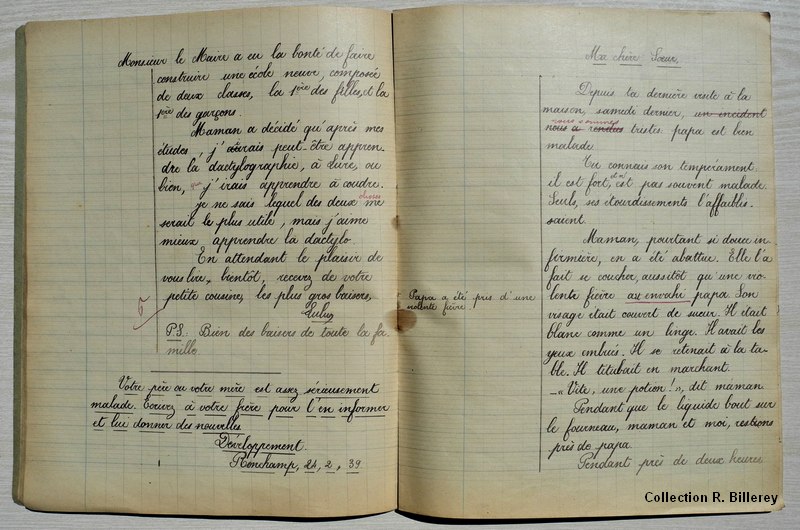 Monsieur le Maire a eu la bonté de faire
construire une école neuve, composée
de deux classes, la 1ère des filles, et la
1ère des garçons.
Maman a décidé qu'après mes
études, j'aurais peut-être appren-
dre la dactylographie, à Lure, ou
bien, que j'irais apprendre à coudre.
je ne sais lequel des deux choses me
serait le plus utile, mais j'aime
mieux apprendre la dactylo.
En attendant le plaisir de
vous lire, bientôt, recevez de votre
petite cousine, les plus gros baisers.
Lulu
P.S. Bien des baisers de toute la fa
mille.
Votre père ou votre mère est assez sérieusement
malade. Ecrivez à votre frère pour l'en informer
et lui donner des nouvelles
Développement.
Ronchamp, 24, 2, 39.
Ma chère Sœur,
Depuis ta dernière visite à la
maison, samedi dernier, un incident
nous sommes
nous a rendus tristes. papa est bien
malade.
Tu connais son tempérament.
il est fort, et n'est pas souvent malade.
Seuls, ses étourdissements l'affaiblis-
saient.
Maman, pourtant si douce in-
firmière, en a été abattue. Elle l'a
fait se coucher, aussitôt qu'une vio-
lente fièvre eut envahi papa. Son
visage était couvert de sueur. Il était
blanc comme un linge. Il avait les
yeux embués. Il se retenait à la ta-
ble. Il titubait en marchant.
_ « Vite, une potion! », dit maman
Pendant que le liquide bout sur
le fourneau, maman et moi, restions
près de papa.
Pendant près de deux heures
Papa a été pris d'une
violente fièvre.
Collection R. Billerey